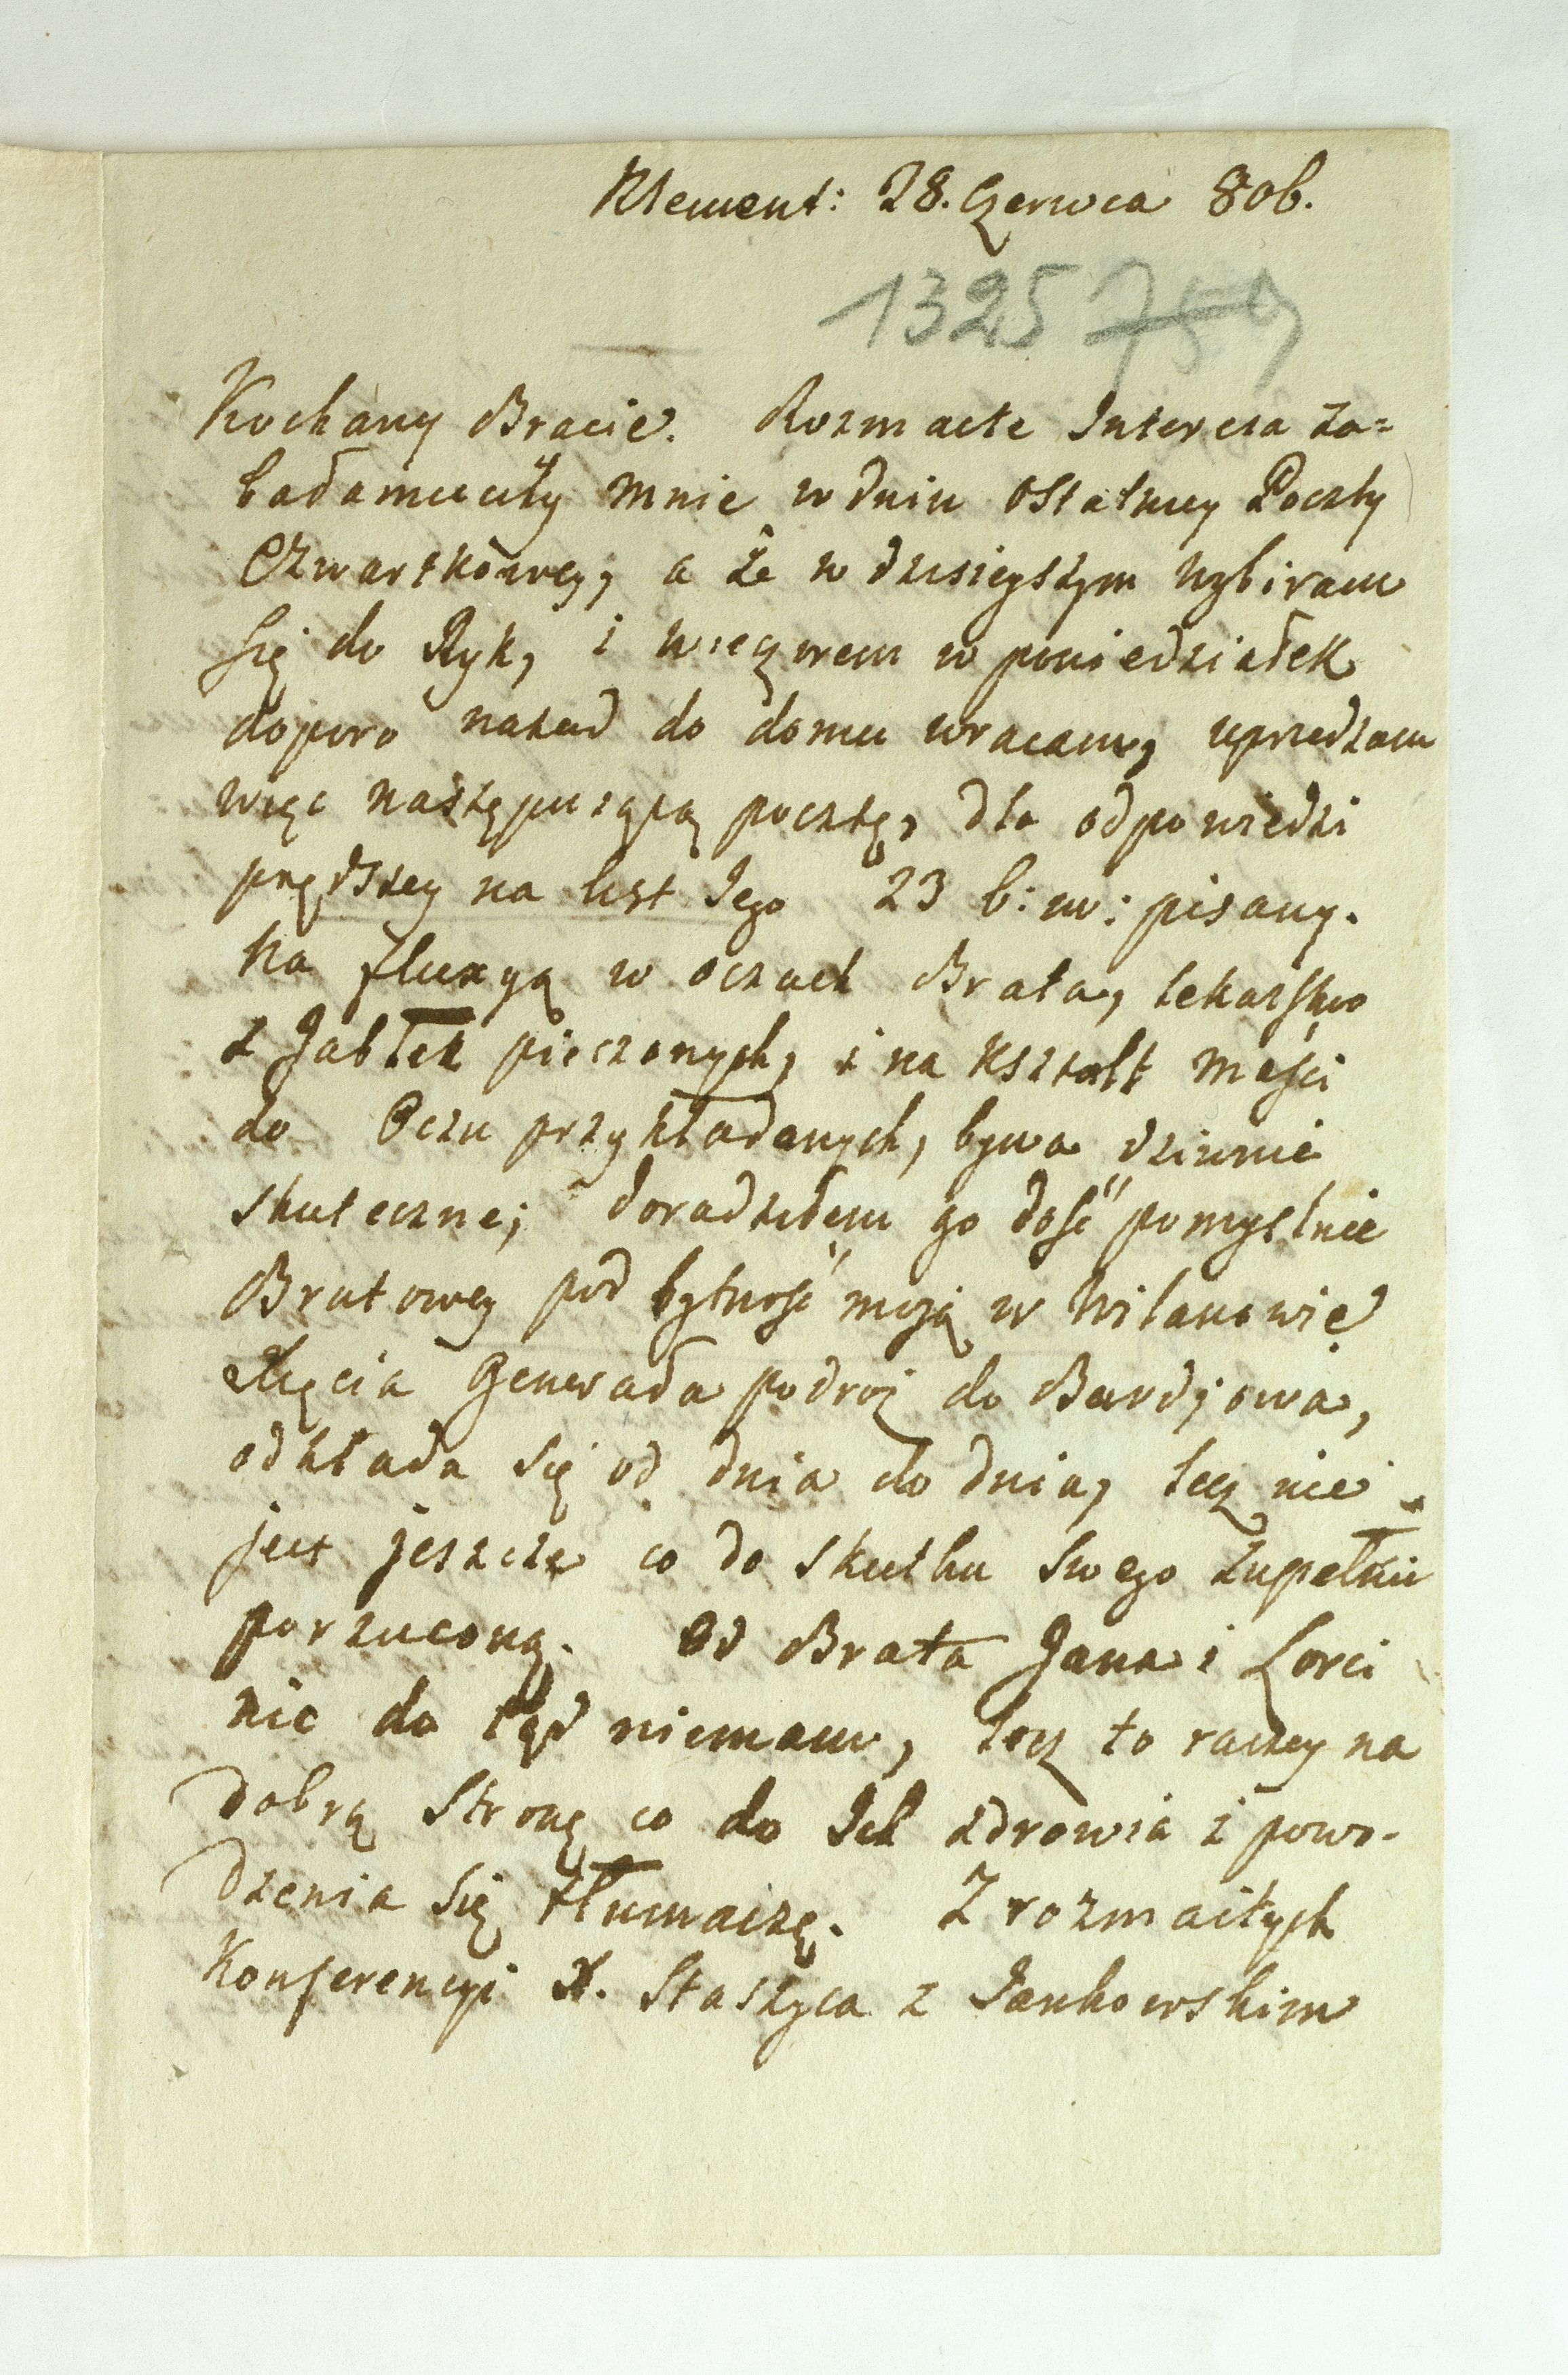 Klement: 28. Czerwca 806.
1325 759
Kochany Bracie. Rozmaite Interesa za=
bałamuciły mnie w dniu ostatniey Poczty
Czwartkowey, a że w dzisieyszym wybiram
się do Ryk, i wieczorem w poniedziałek
dopiro nazad do domu wracam, uprzedzam
więc następuiącą pocztę, dla odpowiedzi
prędszey na list Jego 23 b: m: pisany.
Na fluxyą w oczach Brata, lekarstwo
z Jabłek pieczonych, i na kształt maści
do Oczu przykładanych, bywa dziwnie
skuteczne; doradziłem go dość pomyslnie
Bratowey pod bytność moią w Wilanowie
Xięcia Generała podroż do Bardyowa,
odkłada się od dnia do dnia, lecz nie
iest ieszcze co do skutku swego zupełnie
porzuconą. Od Brata Jana i Lorci
nic do tąd niemam, lecz to raczey na
dobrą stronę co do Ich zdrowia i powo-
dzenia się tłumaczę. Z rozmaitych
Konferencyi X. Staszyca z Jankowskim